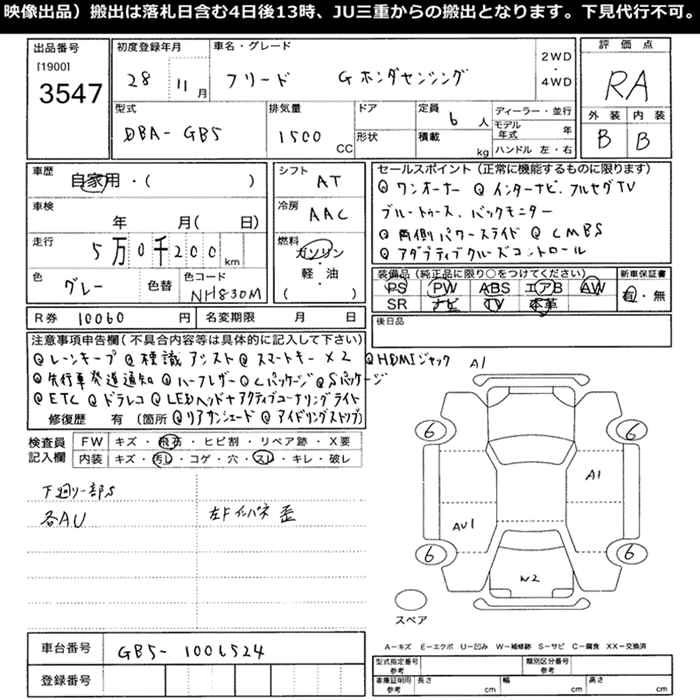 映像出品）搬出は落札日含む4日後13時、JU三重からの搬出となります。下見代行不可。
出品番号 初度登録年月 車名・グレード 2WD・4WD 評価点
[1900]
3547 28 11月 フリード Gホンダセンシング RA
型式 排気量 ドア 定員 ディーラー・並行 外装 内装
DBA-GB5 1500 CC 形状 6人 モデル年式 年 B B
積載 kg ハンドル 左・右
車歴 自家用・( ) シフト AT
セールスポイント（正常に機能するものに限ります）
◎ワンオーナー ◎インターナビ.フルセグTV
車検 年 月( 日) 冷房 AAC
ブルートゥース.バックモニター
走行 5万0千200km 燃料 ガソリン・軽・油 ( )
◎両側パワースライド ◎CMBS
◎アダプティブクルーズコントロール
色 グレー 色替 色コード NH830M
装備品（純正品に限り○をつけてください） 新車保証書
PS PW ABS エアB AW 有・無
SR ナビ TV 本革
R券 10060円 名変期限 月 日
後日品
注意事項申告欄（不具合内容等は具体的に記入して下さい）
◎レーンキープ ◎標識アシスト ◎スマートキー×2 ◎HDMIジャック
◎先行車発進通知 ◎ハーフレザー ◎Cパッケージ ◎Sパッケージ
◎ETC ◎ドラレコ ◎LEDヘッド+アクティブコーナリングライト
修復歴 有（箇所 ◎リアサンシェード ◎アイドリングストップ）
検査員記入欄 FW キズ・飛石・ヒビ割・リペア跡・X要
内装 キズ・汚レ・コゲ・穴・スレ・キレ・破レ
下廻り一部S
各AU 左Fインパネ歪
A1
6 6
A1
AU1
6 6
W2
スペア
A-キズ E-エクボ U-凹み W-補修跡 S-サビ C-腐食 XX-交換済
車台番号 GB5-1006524
型式指定番号 参考 類別区分番号 参考
登録番号
車庫証明用 参考 長さ cm 幅 cm 高さ cm